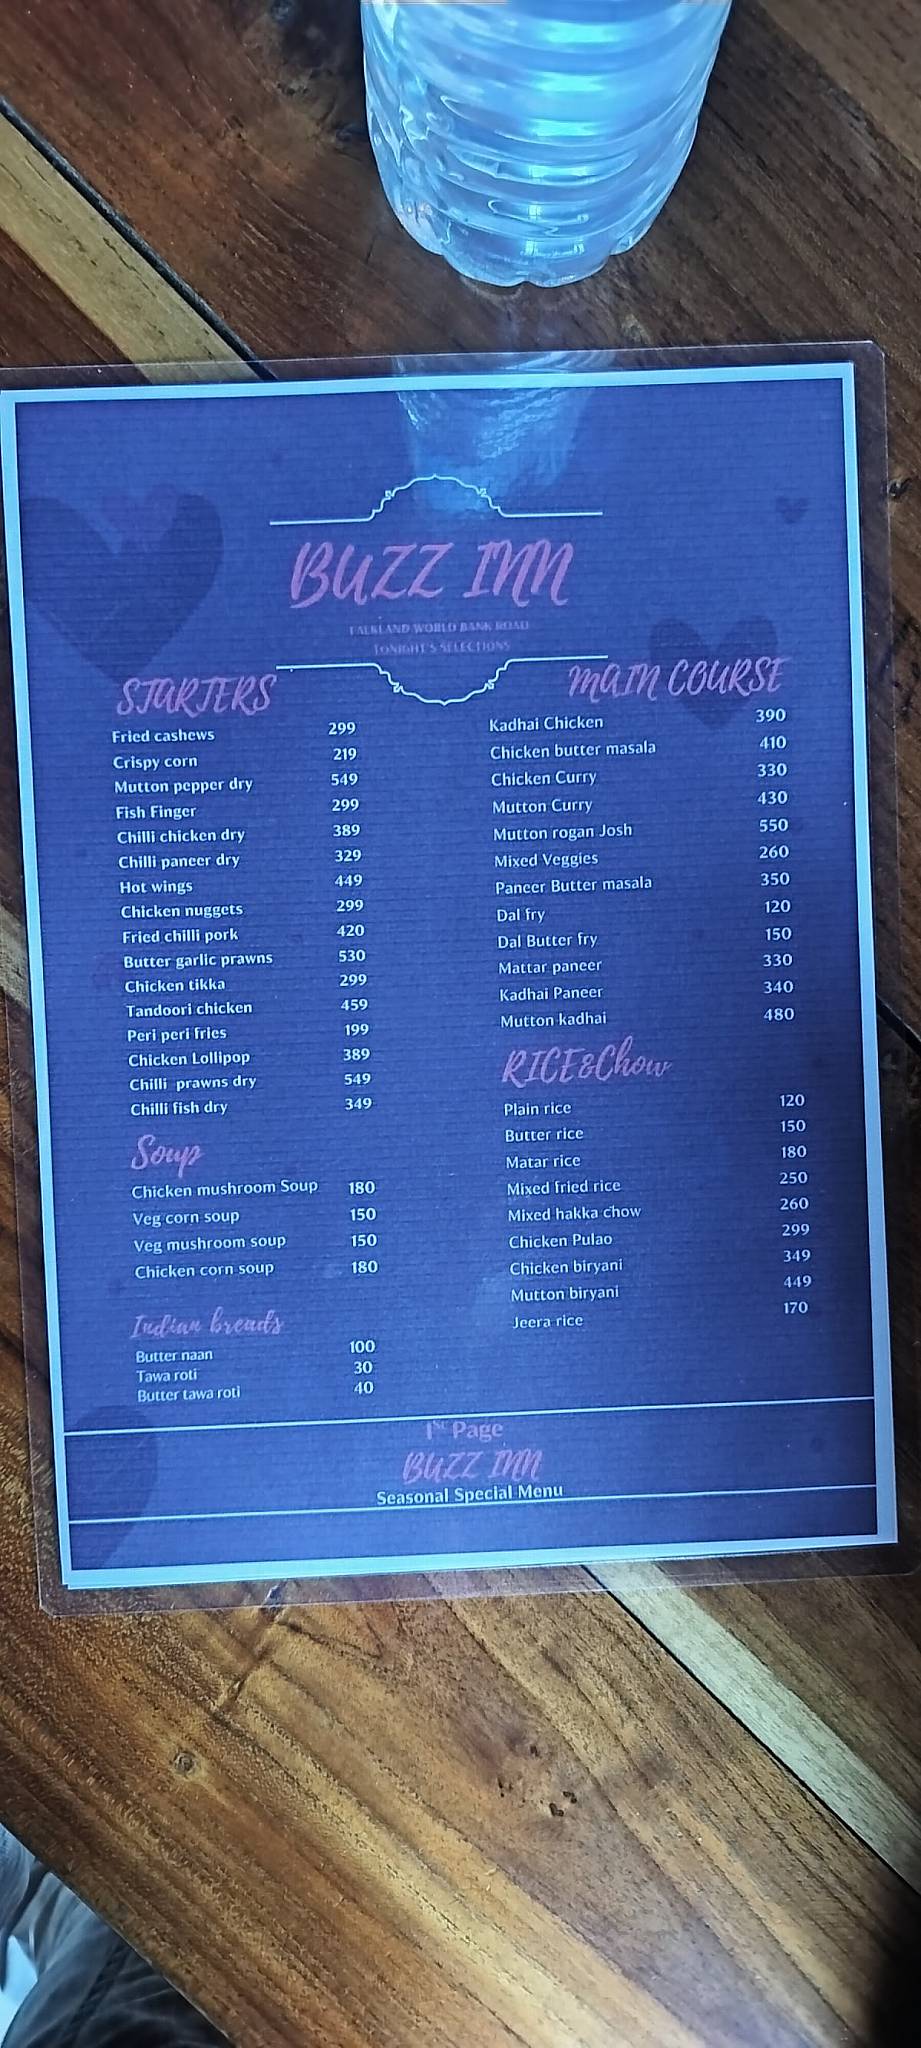 BUZZ INN
FALKLAND WORLD BANK ROAD
TONIGHT'S SELECTIONS
STARTERS
Fried cashews 299
Crispy corn 219
Mutton pepper dry 549
Fish Finger 299
Chilli chicken dry 389
Chilli paneer dry 329
Hot wings 449
Chicken nuggets 299
Fried chilli pork 420
Butter garlic prawns 530
Chicken tikka 299
Tandoori chicken 459
Peri peri fries 199
Chicken Lollipop 389
Chilli prawns dry 549
Chilli fish dry 349
Soup
Chicken mushroom Soup 180
Veg corn soup 150
Veg mushroom soup 150
Chicken corn soup 180
Indian breads
Butter naan 100
Tawa roti 30
Butter tawa roti 40
MAIN COURSE
Kadhai Chicken 390
Chicken butter masala 410
Chicken Curry 330
Mutton Curry 430
Mutton rogan Josh 550
Mixed Veggies 260
Paneer Butter masala 350
Dal fry 120
Dal Butter fry 150
Mattar paneer 330
Kadhai Paneer 340
Mutton kadhai 480
RICE&Chow
Plain rice 120
Butter rice 150
Matar rice 180
Mixed fried rice 250
Mixed hakka chow 260
Chicken Pulao 299
Chicken biryani 349
Mutton biryani 449
Jeera rice 170
1st Page
BUZZ INN
Seasonal Special Menu